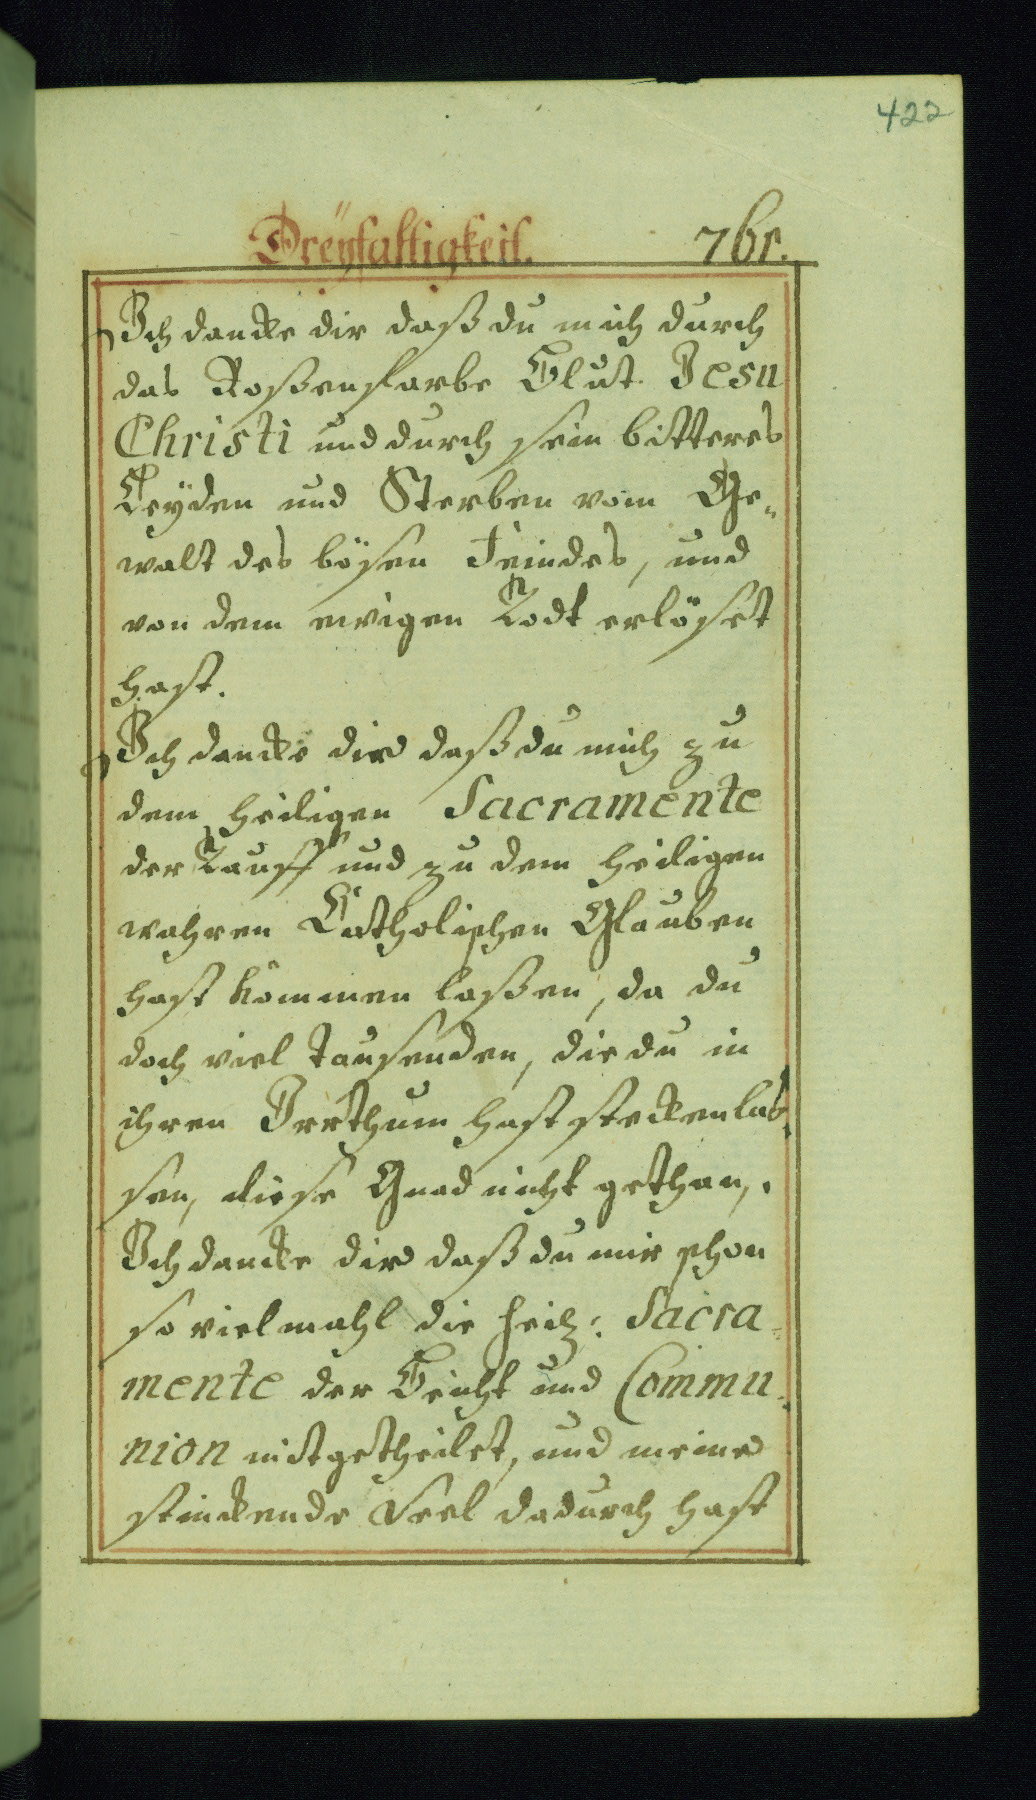 422
Dreÿfaltigkeit. 761.
Ich dancke dir daß du mich durch
das Roßenfarbe Blut Jesu
Christi und durch sein bitteres
Leÿden und Sterben vom Ge„
walt des bösen Feindes, und
von dem ewigen Todt erlöset
hast.
Ich dancke dir daß du mich zu
dem heiligen Sacramente
der Tauff und zu dem heiligen
wahren Catholischen Glauben
hast kommen laßen, da du
doch viel Tausenden, die du in
ihren Irrthum hast stecken las„
sen, diese Gnad nicht gethan.
Ich dancke dir daß du mir schon
so vielmahl die heil: Sacra„
mente der Beicht und Commu„
nion mitgetheilet, und meine
stinckende Seel dadurch hast